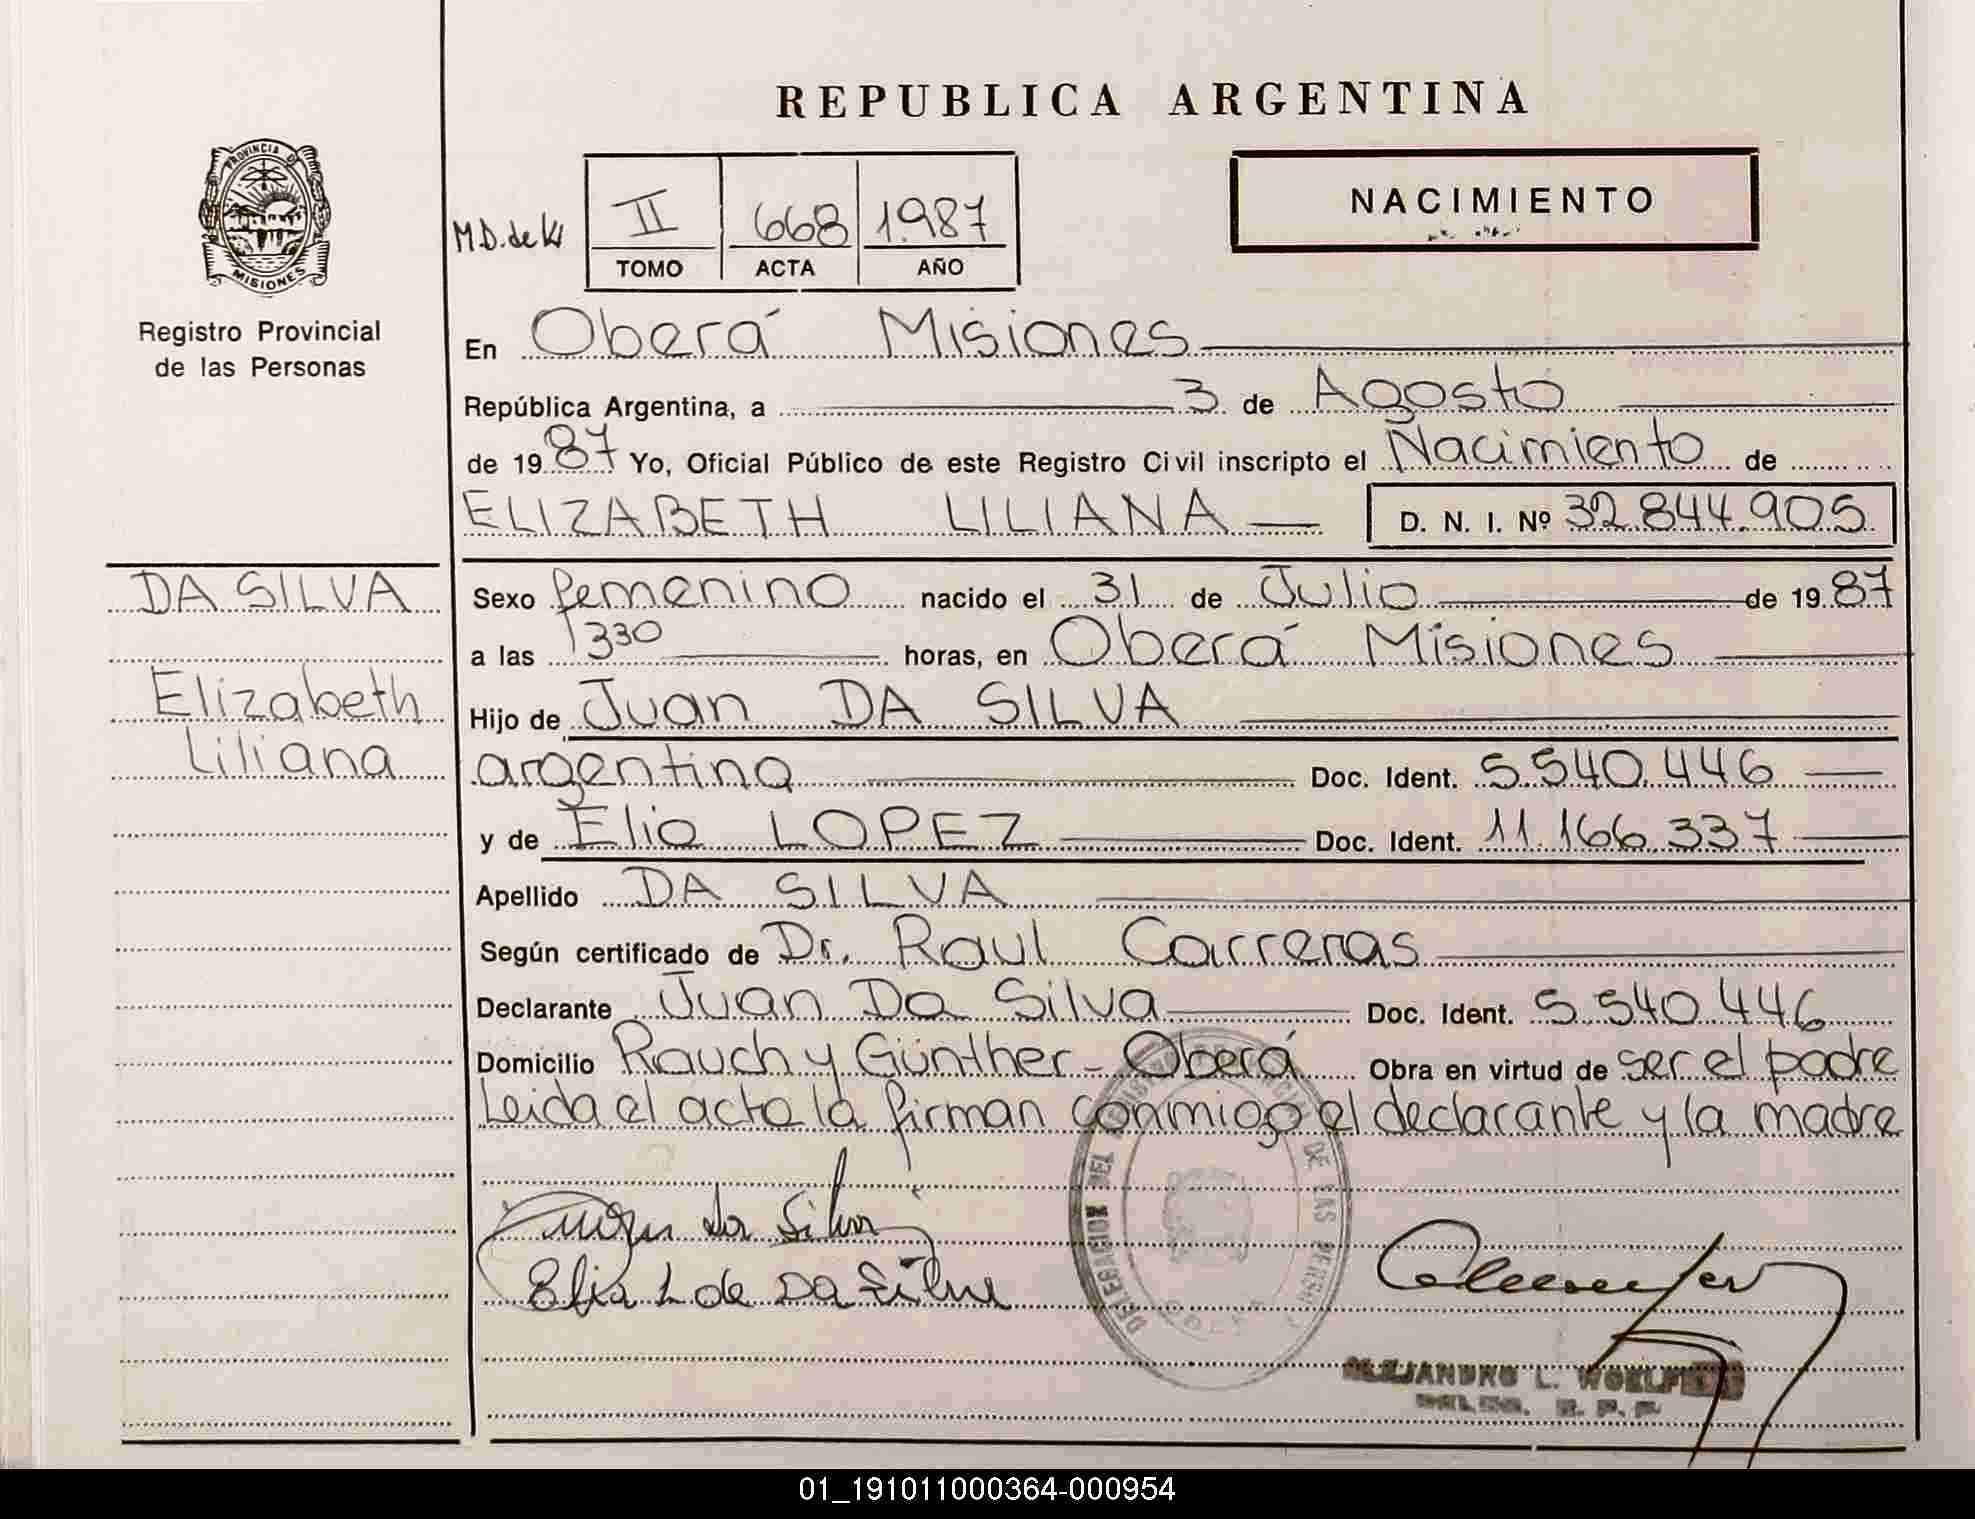 REPUBLICA ARGENTINA
PROVINCIA DE
MISIONES
Registro Provincial
de las Personas
NACIMIENTO
M.D. de
II 668 1.987
TOMO ACTA AÑO
En Oberá Misiones
República Argentina, a 3 de Agosto
de 19 87 Yo, Oficial Público de este Registro Civil inscripto el Nacimiento de
ELIZABETH LILIANA D. N. I. Nº 32.844.905
DA SILVA
Elizabeth
Liliana
Sexo femenino nacido el 31 de Julio de 19 87
a las 1330 horas, en Oberá Misiones
Hijo de Juan DA SILVA
argentino Doc. Ident. 5.540.446
y de Elia LOPEZ Doc. Ident. 11.166.337
Apellido DA SILVA
Según certificado de Dr. Raul Carreras
Declarante Juan Da Silva Doc. Ident. 5.540.446
Domicilio Rauch y Günther - Oberá Obra en virtud de ser el padre
Leida el acta la firman conmigo el declarante y la madre
Juan da Silva
Elia L de Da Silva
DELEGACION DEL REGISTRO PROVINCIAL DE LAS PERSONAS
ALEJANDRO L.
01_191011000364-000954